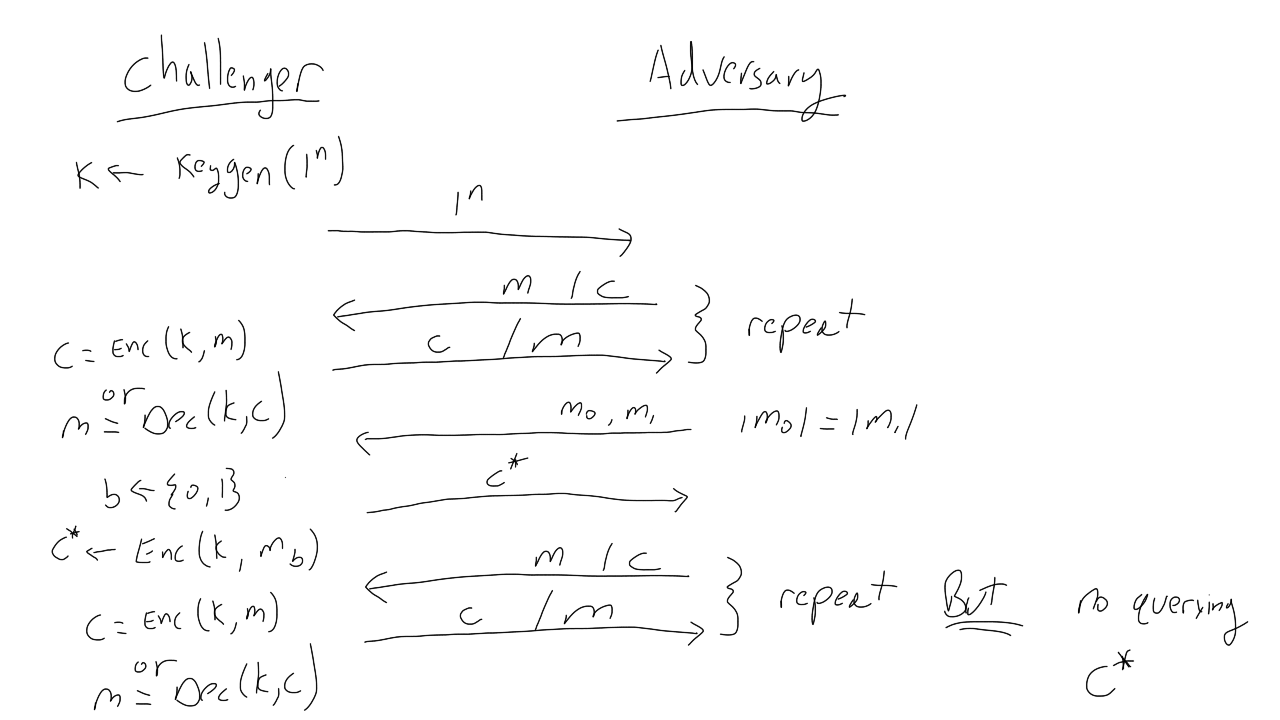 Challenger Adversary
K ← Keygen(1ⁿ)
1ⁿ
m / c
c / m } repeat
C = Enc(k, m)
or
m = Dec(k, c)
m₀, m₁ |m₀| = |m₁|
b ← {0, 1}
c*
c* ← Enc(k, m_b)
m / c
c / m } repeat But no querying
C*
C = Enc(k, m)
or
m = Dec(k, c)